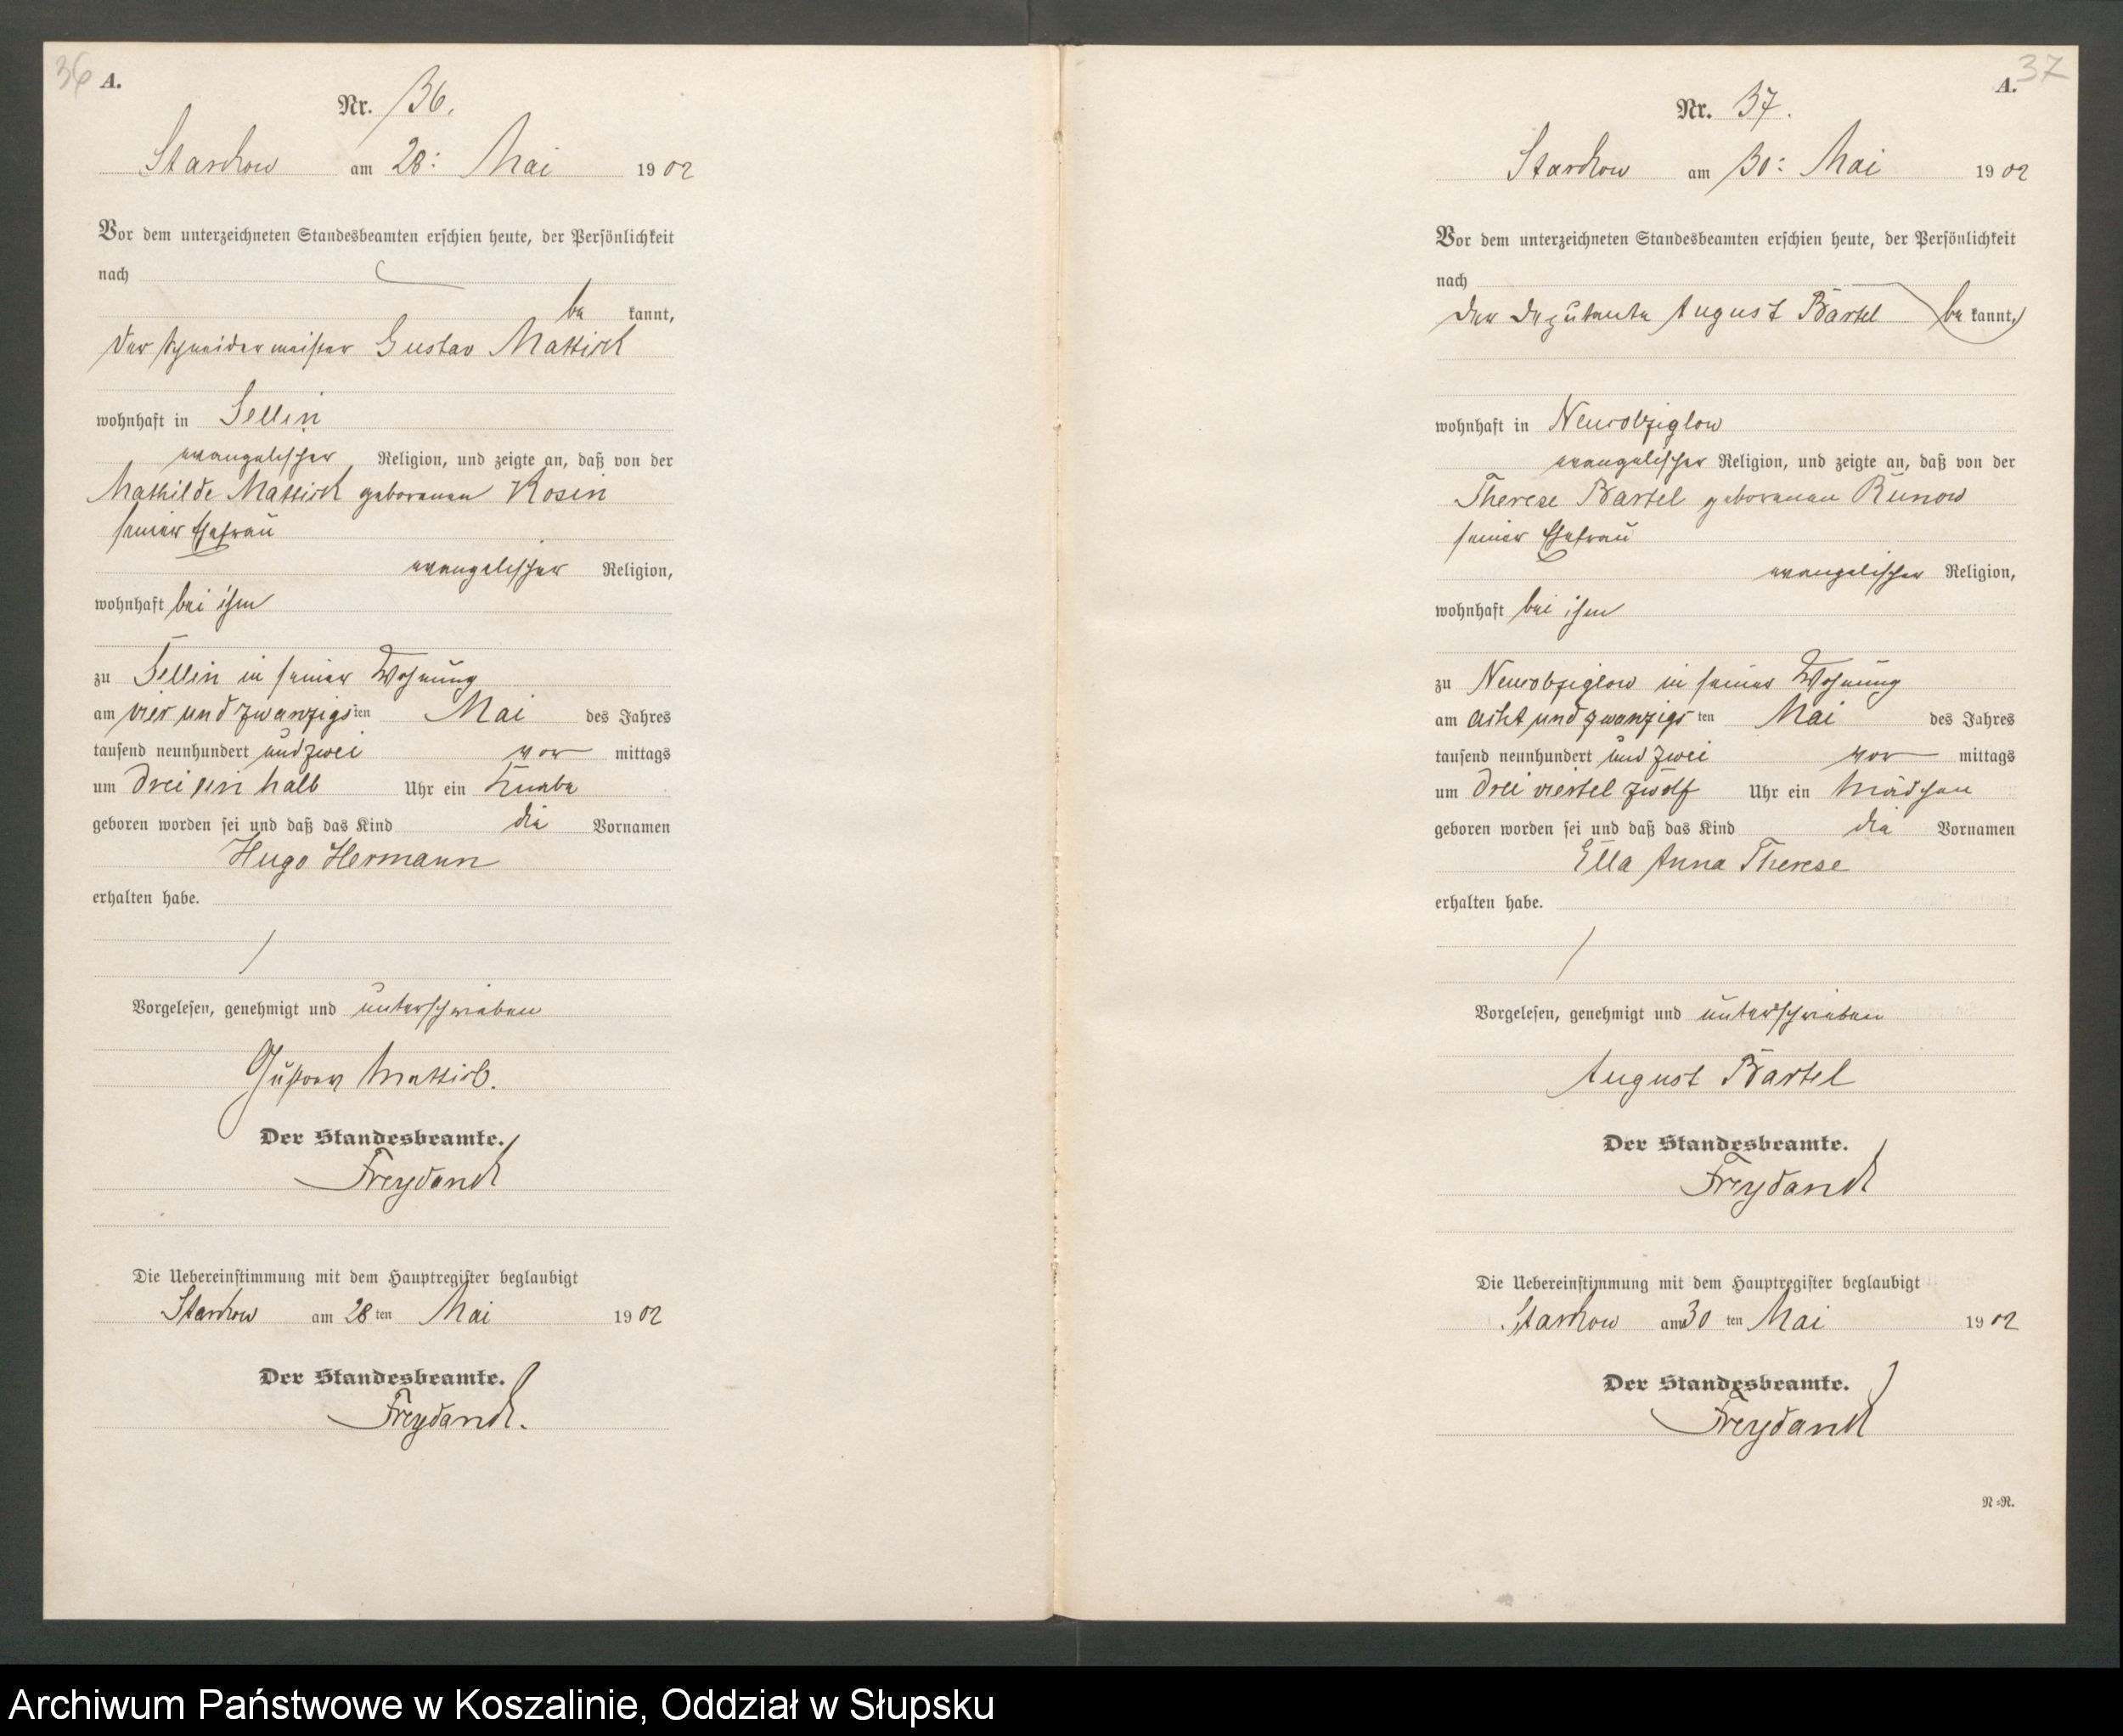 36 A.
Nr. 36.
Starckow am 28: Mai 1902
Vor dem unterzeichneten Standesbeamten erschien heute, der Persönlichkeit
nach
be kannt,
der Schneidermeister Gustav Mattick
wohnhaft in Sellin
evangelischer Religion, und zeigte an, daß von der
Mathilde Mattick geborenen Kosin
seiner Ehefrau
evangelischer Religion,
wohnhaft bei ihm
zu Sellin in seiner Wohnung
am vier und zwanzigsten Mai des Jahres
tausend neunhundert und zwei vor mittags
um drei ein halb Uhr ein Knabe
geboren worden sei und daß das Kind die Vornamen
Hugo Hermann
erhalten habe.
Vorgelesen, genehmigt und unterschrieben
Gustav Mattick.
Der Standesbeamte.
Freydanck
Die Uebereinstimmung mit dem Hauptregister beglaubigt
Starckow am 28ten Mai 1902
Der Standesbeamte.
Freydanck.
A. 37
Nr. 37.
Starckow am 30: Mai 1902
Vor dem unterzeichneten Standesbeamten erschien heute, der Persönlichkeit
nach
der Deputante August Bartel be kannt,
wohnhaft in Neurobziglow
evangelischer Religion, und zeigte an, daß von der
Therese Bartel geborenen Runow
seiner Ehefrau
evangelischer Religion,
wohnhaft bei ihm
zu Neurobziglow in seiner Wohnung
am acht und zwanzigsten Mai des Jahres
tausend neunhundert und zwei vor mittags
um drei viertel zwölf Uhr ein Mädchen
geboren worden sei und daß das Kind die Vornamen
Ella Anna Therese
erhalten habe.
Vorgelesen, genehmigt und unterschrieben
August Bartel
Der Standesbeamte.
Freydanck
Die Uebereinstimmung mit dem Hauptregister beglaubigt
Starckow am 30ten Mai 1902
Der Standesbeamte.
Freydanck
N=R.
Archiwum Państwowe w Koszalinie, Oddział w Słupsku